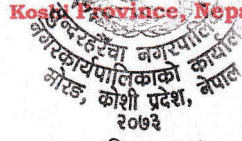 Koshi Province, Nep
सुन्दरहरैंचा नगरपालि
नगरकार्यपालिकाको कार्यालय
मोरङ, कोशी प्रदेश, नेपाल
२०७३